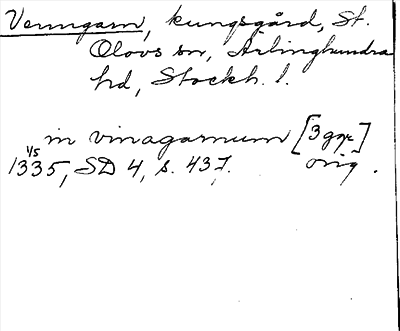 Venngarn, kungsgård, St.
Olovs sn, Ärlinghundra
hd, Stockh. l.
in vinagarnum [3 ggr]
1335 1/5, SD 4, s. 437. orig.